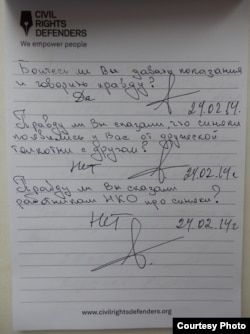 CIVIL
RIGHTS
DEFENDERS
We empower people
Боитесь ли Вы давать показания
и говорить правду?
Да
27.02.14.
Правду ли Вы сказали что синяки
появились у Вас от дружеской
толкотни с другом?
Нет
27.02.14г
Правду ли Вы сказали
работникам НКО про синяки?
НЕТ
27.02.14г
www.civilrightsdefenders.org
Courtesy Photo